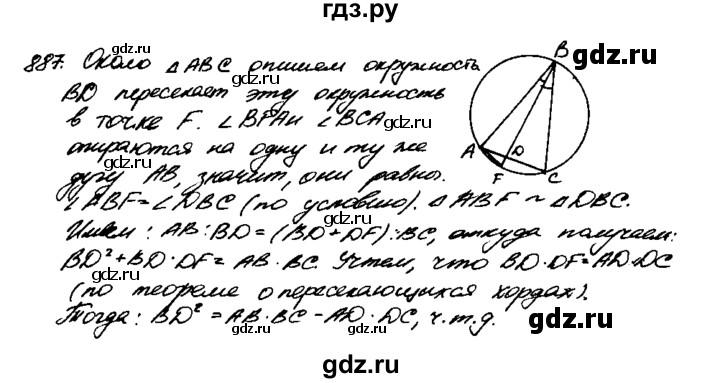 гдз.ру
887. Около △ABC опишем окружность
BD пересекает эту окружность
в точке F. ∠BFA и ∠BCA
опираются на одну и ту же
дугу AB, значит, они равны.
∠ABF = ∠DBC (по условию). △ABF ~ △DBC.
Имеем: AB:BD = (BD+DF):BC, откуда получаем:
BD² + BD·DF = AB·BC. Учтем, что BD·DF = AD·DC
(по теореме о пересекающихся хордах).
Тогда: BD² = AB·BC − AD·DC, ч.т.д.
B
A
D
F
C
gdz.ru
gdz.ru
gdz.ru
gdz.ru
gdz.ru
gdz.ru
gdz.ru
gdz.ru
gdz.ru
gdz.ru